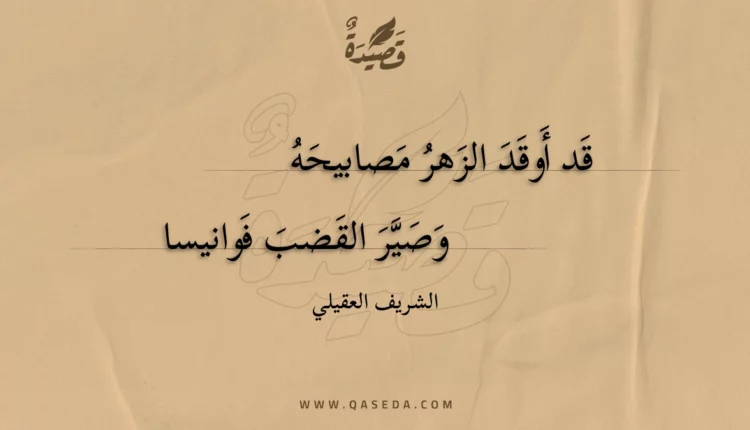 قَصِيْدَةٌ
قَد أَوقَدَ الزَهرُ مَصابيحَهُ
وَصَيَّرَ القَضبَ فَوانيسا
الشريف العقيلي
WWW.QASEDA.COM